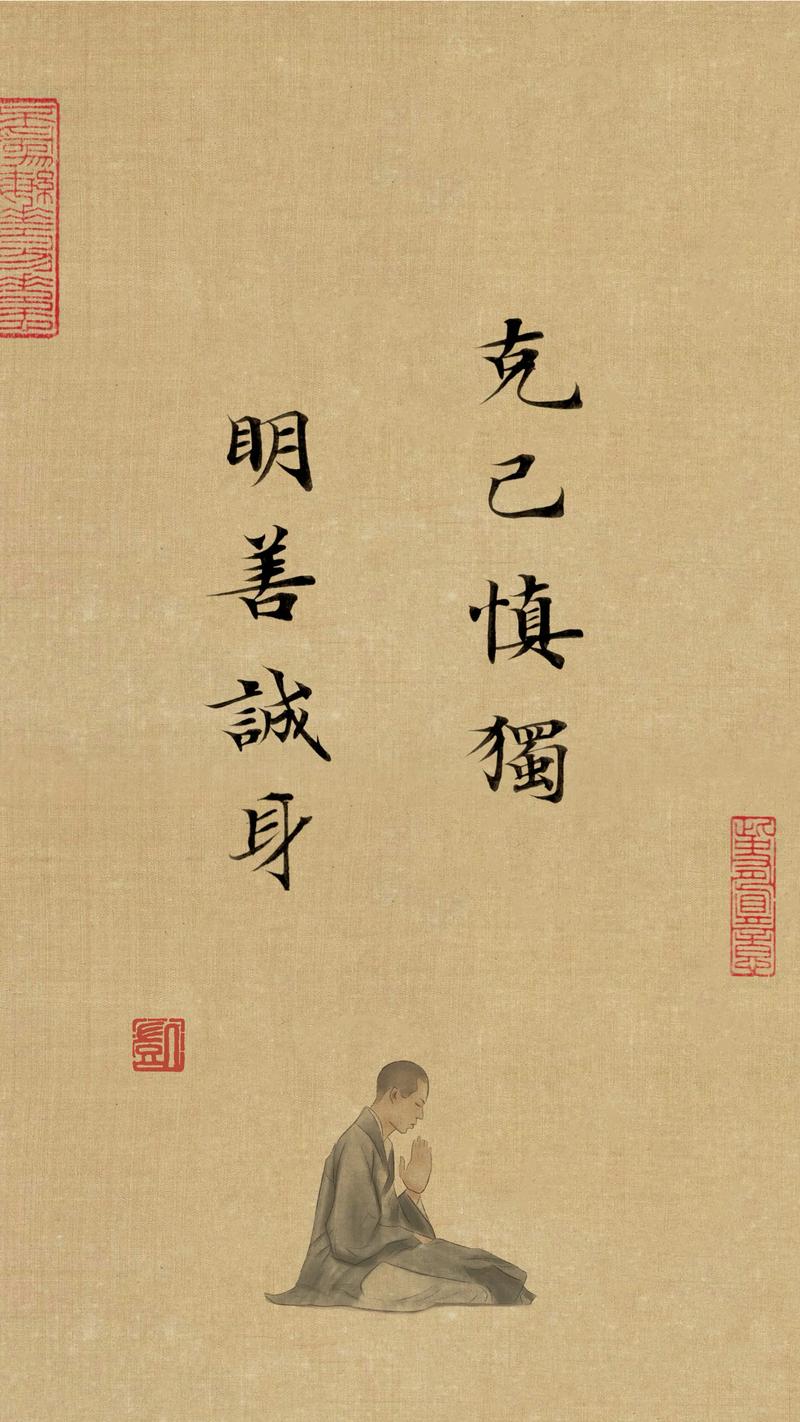 克己慎獨
明善誠身
凱